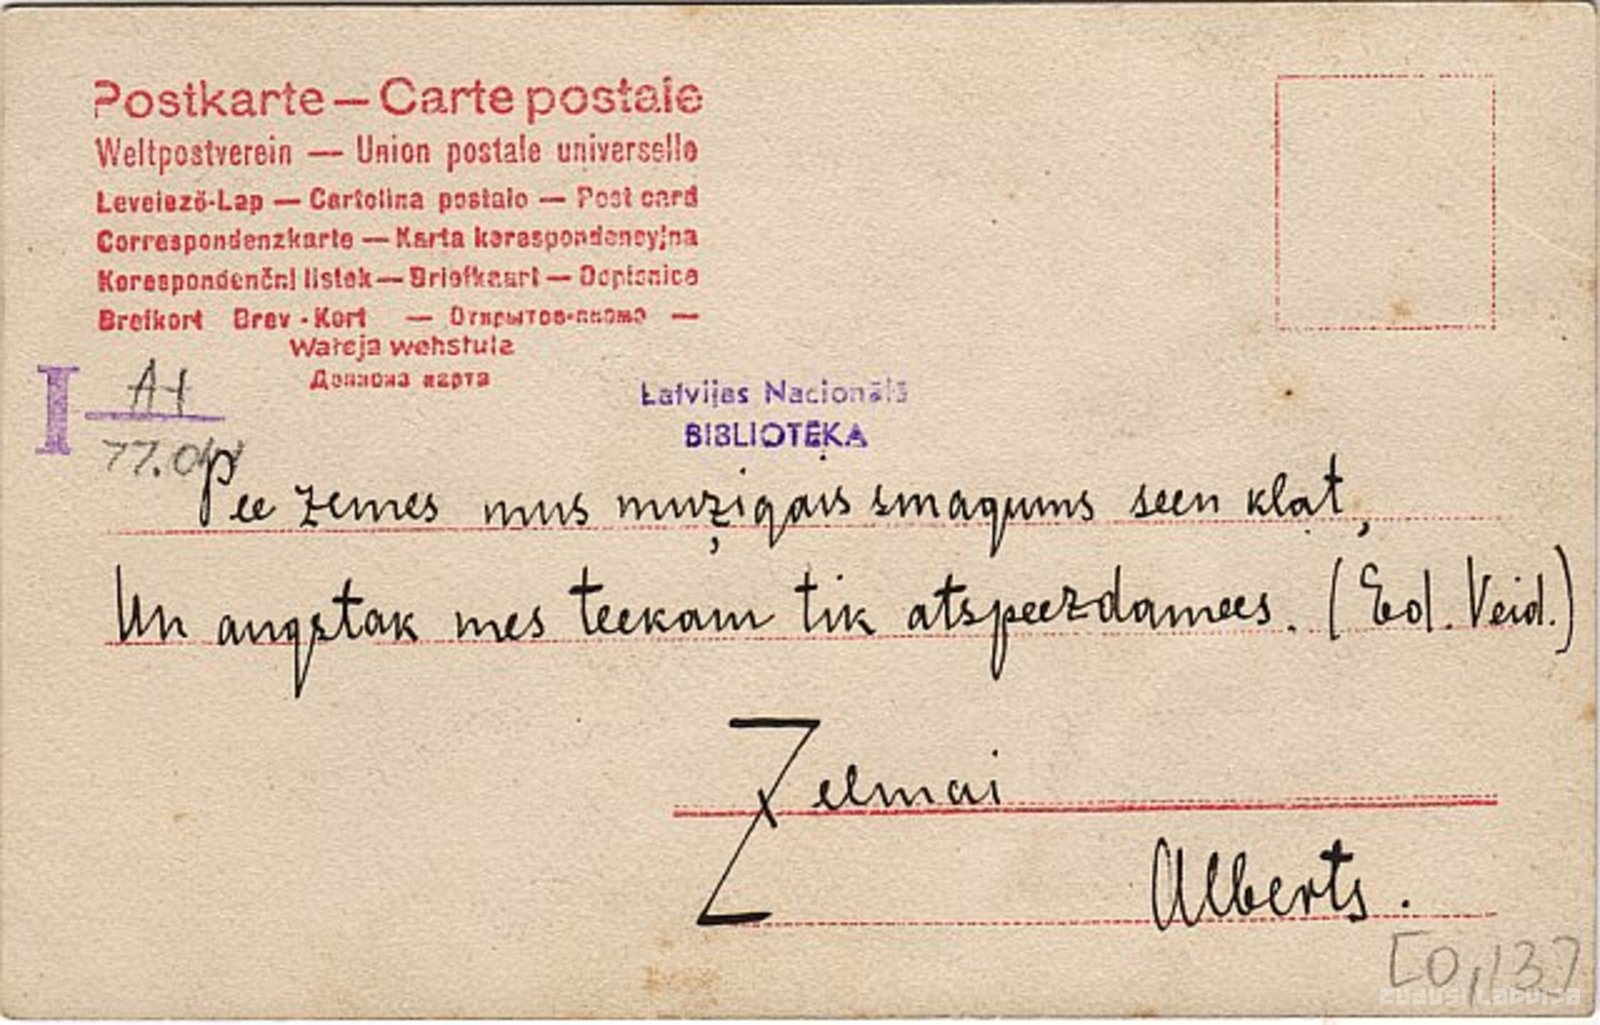 Postkarte — Carte postale
Weltpostverein — Union postale universelle
Levelező-Lap — Cartolina postale — Post card
Correspondenzkarte — Karta korespondencyjna
Korespondenční listek — Briefkaart — Dopisnice
Brefkort Brev-Kort — Открытое письмо —
Wałeja wehstule
Дописна карта
I A-1
77.
Latvijas Nacionālā
BIBLIOTĒKA
Pee zemes mus mužigais smagums seen klat,
Un augstak mes teekam tik atspeezdamees. (Ed. Veid.)
Zelmai
Alberts.
[0,13]
zudusi Latvija